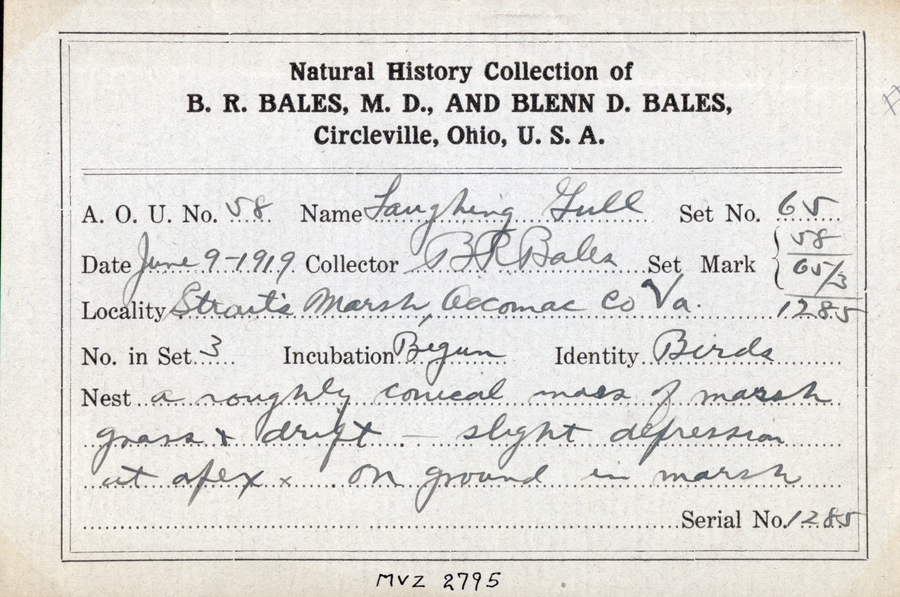 Natural History Collection of
B. R. BALES, M. D., AND BLENN D. BALES,
Circleville, Ohio, U. S. A.
A. O. U. No. 58 Name Laughing Gull Set No. 65
Date June 9-1919 Collector B R Bales Set Mark { 58
65/3
Locality Strait's Marsh, Accomac Co Va. 1285
No. in Set 3 Incubation Begun Identity Birds
Nest a roughly conical mass of marsh
grass & drift - slight depression
at apex x on ground in marsh
Serial No. 1285
MVZ 2795